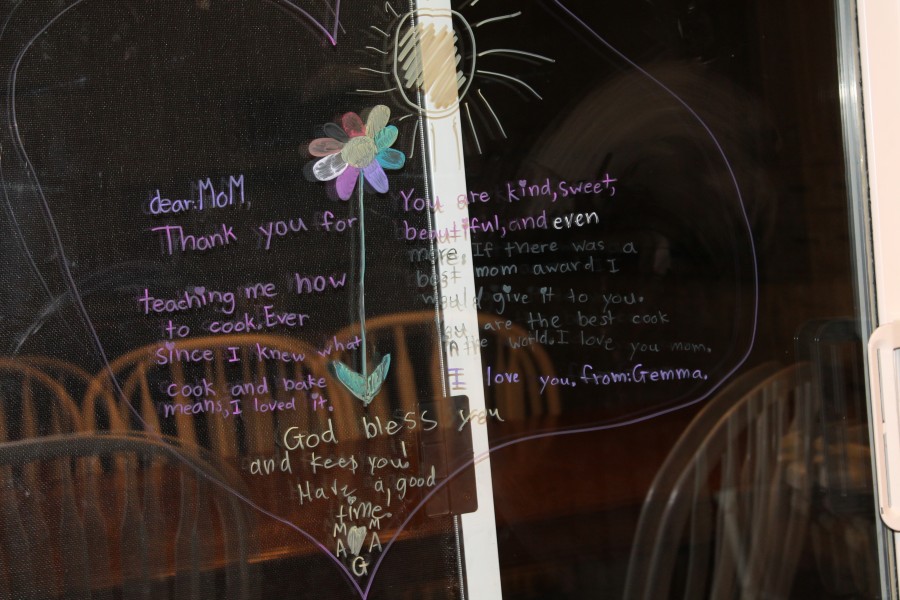 dear:MoM,
Thank you for
teaching me how
to cook.Ever
since I knew what
cook and bake
means,I loved it.
You are kind,sweet,
beautiful,and even
more. If there was a
best mom award I
would give it to you.
You are the best cook
in the world.I love you mom.
I love you.from:Gemma.
God bless you
and keep you!
Have a good
time.
M M
A A
G